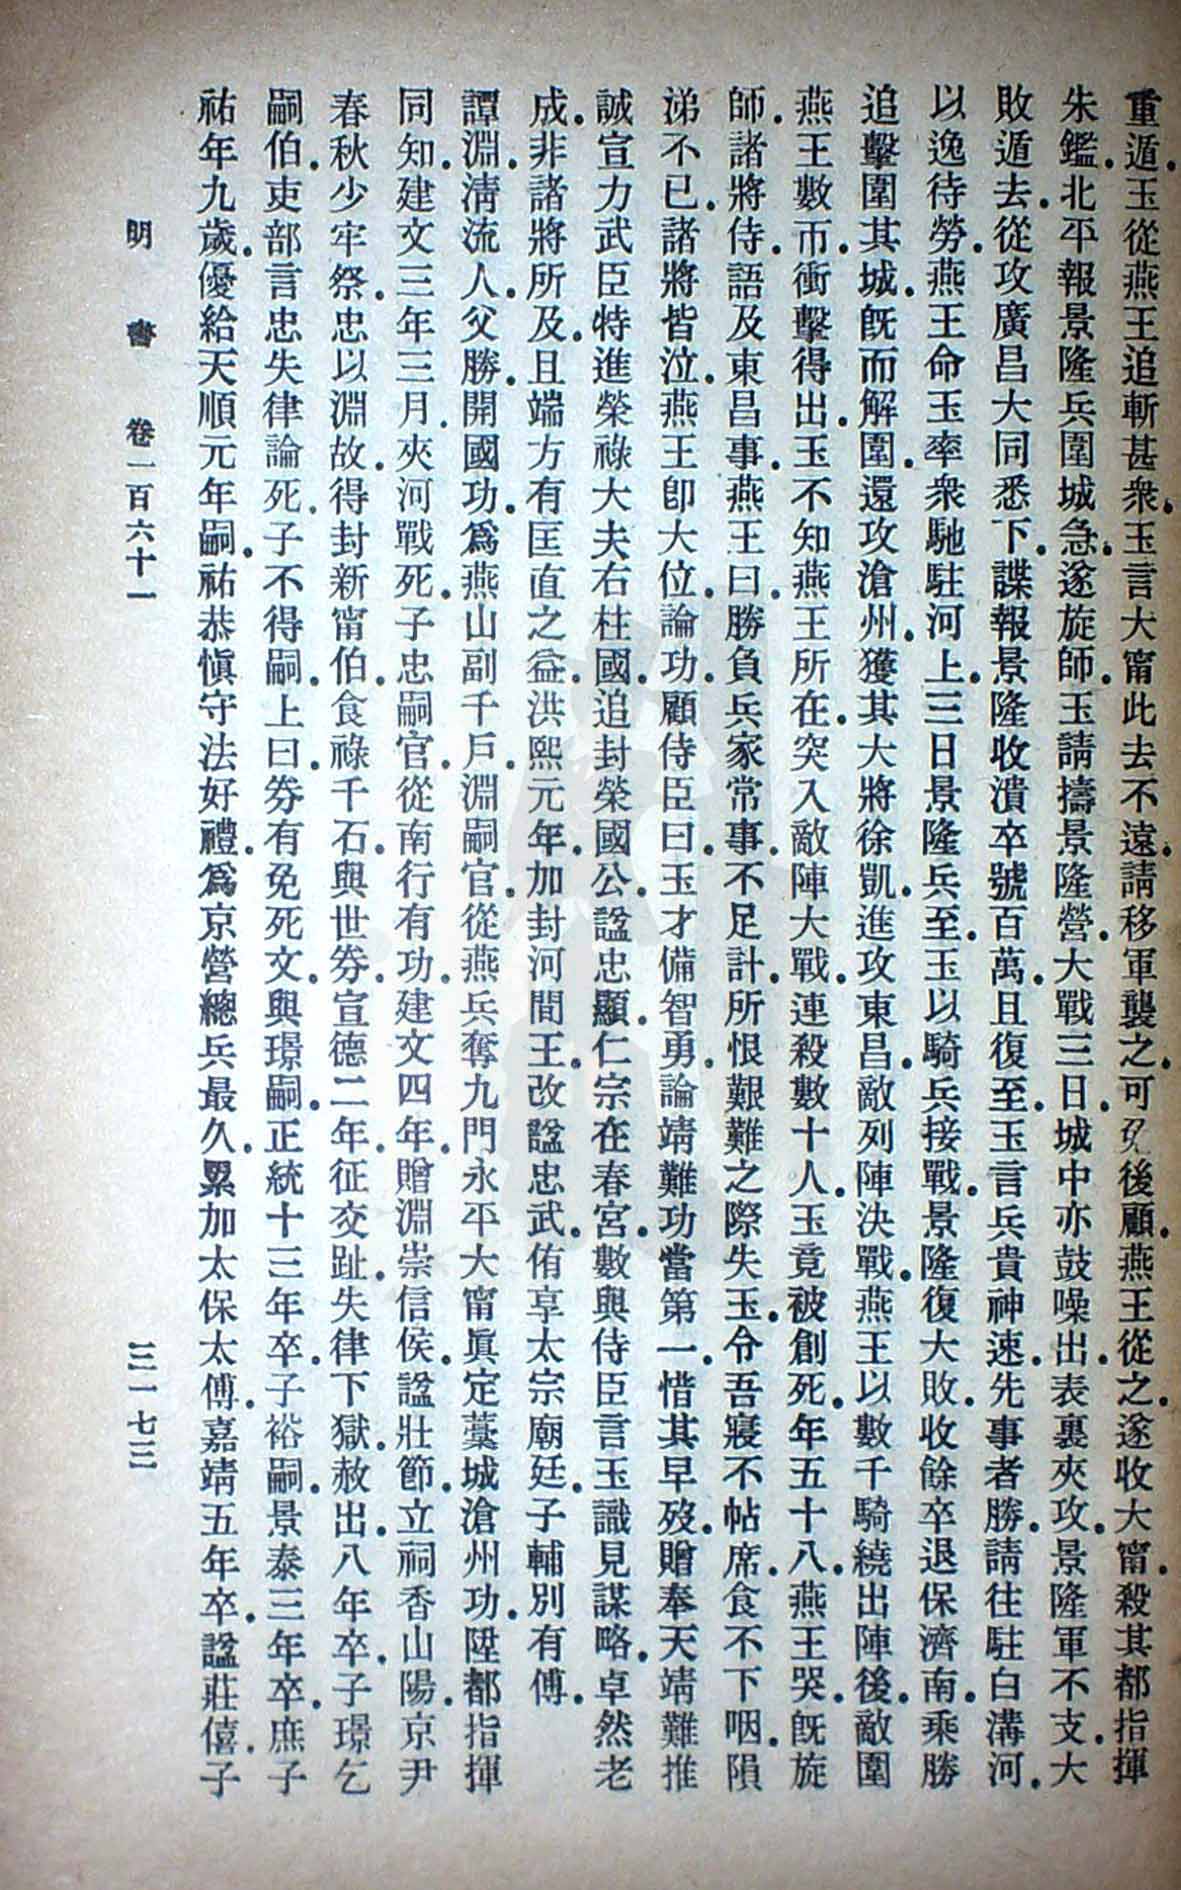 重遁。玉從燕王追斬甚衆。玉言大甯此去不遠。請移軍襲之。可免後顧。燕王從之。遂收大甯。殺其都指揮
朱鑑。北平報景隆兵圍城急。遂旋師。玉請擣景隆營。大戰三日。城中亦鼓噪出。表裏夾攻。景隆軍不支。大
敗遁去。從攻廣昌大同悉下。諜報景隆收潰卒號百萬。且復至。玉言兵貴神速。先事者勝。請往駐白溝河。
以逸待勞。燕王命玉率衆馳駐河上。三日景隆兵至。玉以騎兵接戰。景隆復大敗。收餘卒退保濟南。乘勝
追擊圍其城。旣而解圍。還攻滄州。獲其大將徐凱。進攻東昌。敵列陣決戰。燕王以數千騎繞出陣後。敵圍
燕王數帀。衝擊得出。玉不知燕王所在。突入敵陣大戰。連殺數十人。玉竟被創死。年五十八。燕王哭。旣旋
師。諸將侍。語及東昌事。燕王曰。勝負兵家常事。不足計。所恨艱難之際失玉。令吾寢不帖席。食不下咽。隕
涕不已。諸將皆泣。燕王卽大位。論功。顧侍臣曰。玉才備智勇。論靖難功當第一。惜其早歿。贈奉天靖難推
誠宣力武臣特進榮祿大夫右柱國。追封榮國公。諡忠顯。仁宗在春宮。數與侍臣言玉識見謀略。卓然老
成。非諸將所及。且端方有匡直之益。洪熙元年。加封河間王。改諡忠武。侑享太宗廟廷。子輔別有傳。
譚淵。淸流人。父勝。開國功。爲燕山副千戶。淵嗣官。從燕兵奪九門永平大甯眞定藁城滄州功。陞都指揮
同知。建文三年三月。夾河戰死。子忠嗣官。從南行有功。建文四年。贈淵崇信侯。諡壯節。立祠香山陽。京尹
春秋少牢祭。忠以淵故。得封新甯伯。食祿千石。與世券。宣德二年。征交趾。失律下獄。赦出。八年卒。子璟乞
嗣伯。吏部言忠失律論死。子不得嗣。上曰。券有免死文。與璟嗣。正統十三年卒。子裕嗣。景泰三年卒。庶子
祐年九歲。優給天順元年嗣。祐恭愼守法好禮。爲京營總兵最久。累加太保太傅。嘉靖五年卒。諡莊僖。子
明書 卷一百六十一 三一七三